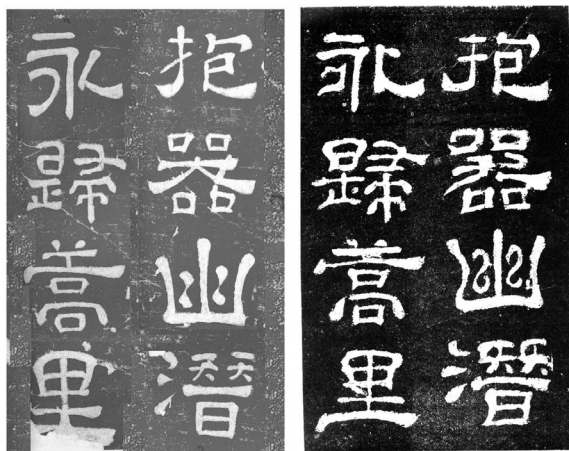 抱器幽潜
永歸蒿里
抱器幽潜
永歸蒿里